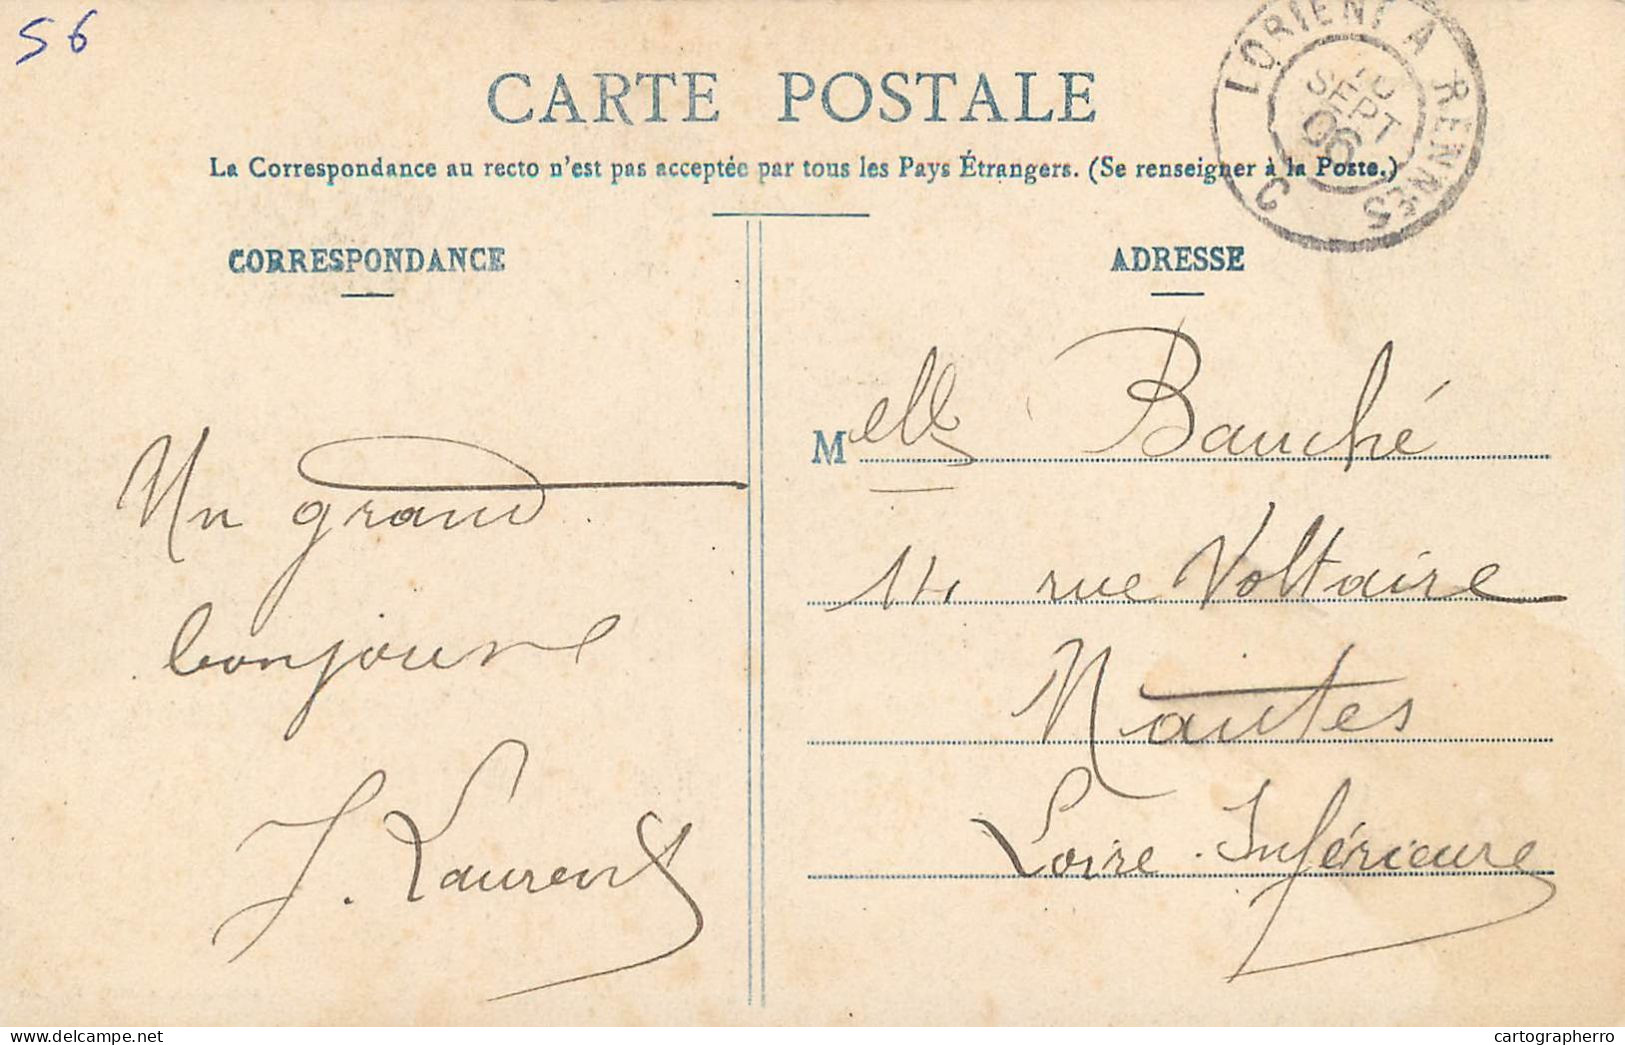 56
LORIENT A RENNES
SEPT
06
CARTE POSTALE
La Correspondance au recto n'est pas acceptée par tous les Pays Étrangers. (Se renseigner à la Poste.)
CORRESPONDANCE
Un grand
bonjour
J. Laurent
ADRESSE
Melle Bauché
14 rue Voltaire
Nantes
Loire-Inférieure
www.delcampe.net
cartographerro